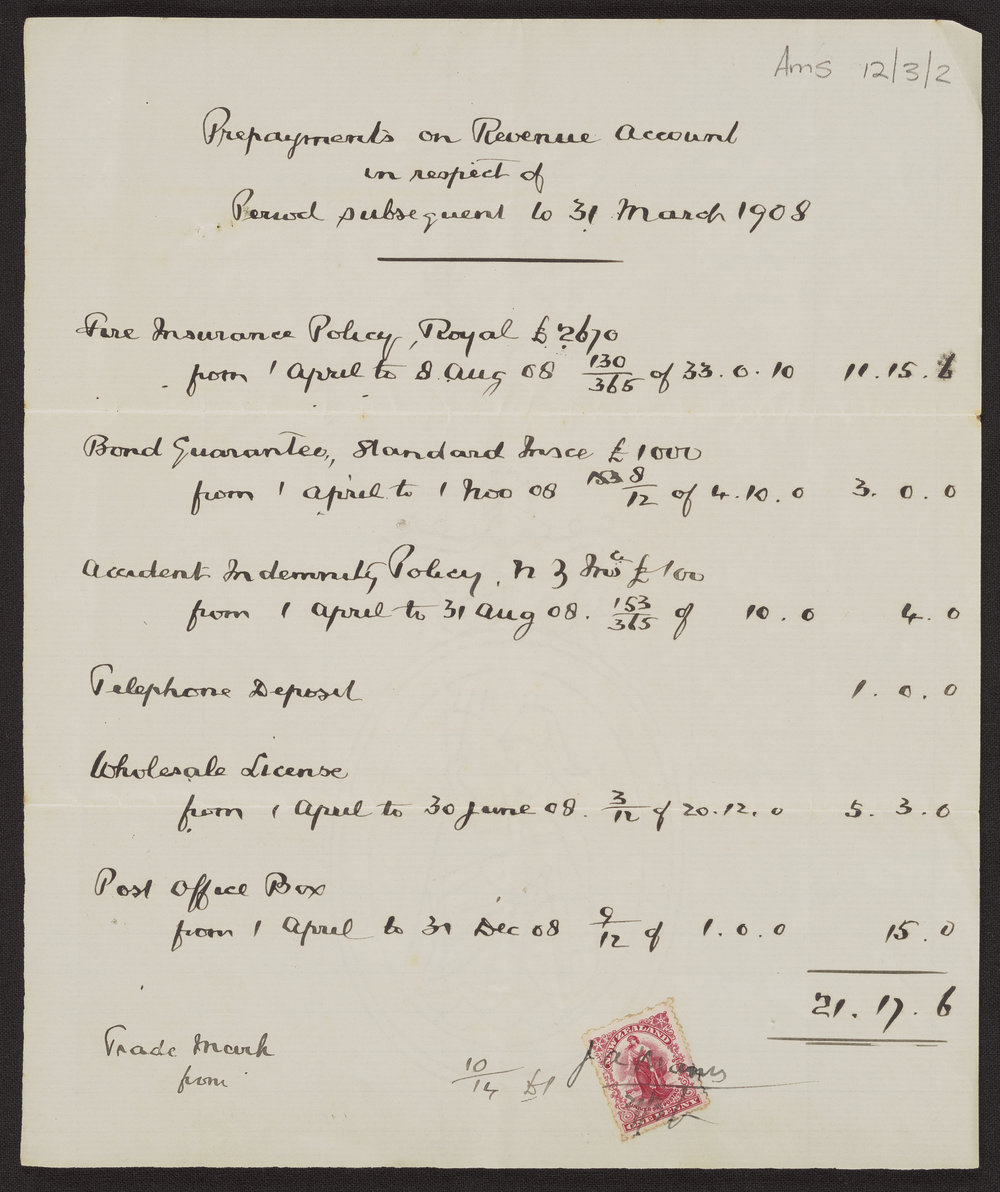 Ams 12/3/2
Prepayments on Revenue Account
in respect of
Period subsequent to 31 March 1908
Fire Insurance Policy, Royal £2670
from 1 April to 8 Aug 08 130/365 of 33.0.10 11.15.6
Bond Guarantee, Standard Insce £1000
from 1 April to 1 Nov 08 153 8/12 of 4.10.0 3.0.0
Accident Indemnity Policy, N Z Insce £100
from 1 April to 31 Aug 08. 153/365 of 10.0 4.0
Telephone Deposit 1.0.0
Wholesale License
from 1 April to 30 June 08. 3/12 of 20.12.0 5.3.0
Post Office Box
from 1 April to 31 Dec 08 9/12 of 1.0.0 15.0
21.17.6
Trade Mark
from 10/14 £1
NEW ZEALAND
ONE PENNY